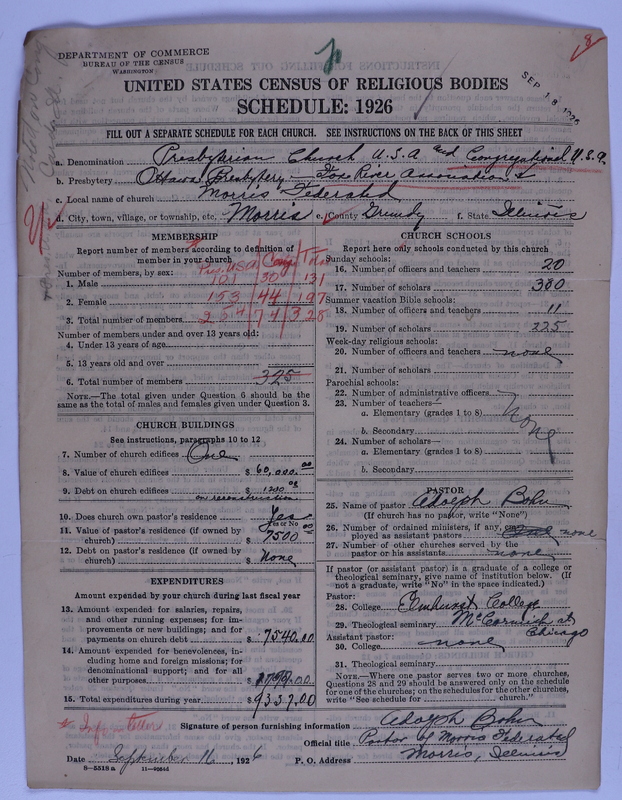 DEPARTMENT OF COMMERCE
BUREAU OF THE CENSUS
WASHINGTON
8
SEP 18 1926
UNITED STATES CENSUS OF RELIGIOUS BODIES
SCHEDULE: 1926
FILL OUT A SEPARATE SCHEDULE FOR EACH CHURCH. SEE INSTRUCTIONS ON THE BACK OF THIS SHEET
a. Denomination Presbyterian Church U.S.A and Congregational U.S.A.
b. Presbytery Ottawa Presbytery - Fox River Association
c. Local name of church Morris Federated
d. City, town, village, or township, etc. Morris e. County Grundy f. State Illinois
MEMBERSHIP
Report number of members according to definition of
member in your church
Pres. USA Cong. Total
Number of members, by sex:
1. Male 101 30 131
2. Female 153 44 197
3. Total number of members 254 74 328
Number of members under and over 13 years old:
4. Under 13 years of age
5. 13 years old and over
6. Total number of members 325
NOTE.—The total given under Question 6 should be the
same as the total of males and females given under Question 3.
CHURCH BUILDINGS
See instructions, paragraphs 10 to 12
7. Number of church edifices One
8. Value of church edifices $ 60,000.00
9. Debt on church edifices $ 1200.00
on reconstruction
10. Does church own pastor's residence Yes
Yes or No
11. Value of pastor's residence (if owned by
church) $ 7500.00
12. Debt on pastor's residence (if owned by
church) $ None
EXPENDITURES
Amount expended by your church during last fiscal year
13. Amount expended for salaries, repairs,
and other running expenses; for im-
provements or new buildings; and for
payments on church debt $ 7540.00
14. Amount expended for benevolences, in-
cluding home and foreign missions; for
denominational support; and for all
other purposes $
15. Total expenditures during year $ 9337.00
CHURCH SCHOOLS
Report here only schools conducted by this church
Sunday schools:
16. Number of officers and teachers 20
17. Number of scholars 380
Summer vacation Bible schools:
18. Number of officers and teachers 11
19. Number of scholars 225
Week-day religious schools:
20. Number of officers and teachers none
21. Number of scholars
Parochial schools:
22. Number of administrative officers
23. Number of teachers—
a. Elementary (grades 1 to 8)
none
b. Secondary
24. Number of scholars—
a. Elementary (grades 1 to 8)
b. Secondary
PASTOR
25. Name of pastor Adolph Bohn
(If church has no pastor, write "None")
26. Number of ordained ministers, if any, em-
ployed as assistant pastors none
27. Number of other churches served by the
pastor or his assistants none
If pastor (or assistant pastor) is a graduate of a college or
theological seminary, give name of institution below. (If
not a graduate, write "No" in the space indicated.)
Pastor:
28. College Elmhurst College
29. Theological seminary McCormick at
Chicago
Assistant pastor:
30. College none
31. Theological seminary
NOTE.—Where one pastor serves two or more churches,
Questions 28 and 29 should be answered only on the schedule
for one of the churches; on the schedules for the other churches,
write "See schedule for ______ church."
Signature of person furnishing information Adolph Bohn
Official title Pastor of Morris Federated
Date September 16, 1926 P. O. Address Morris, Illinois